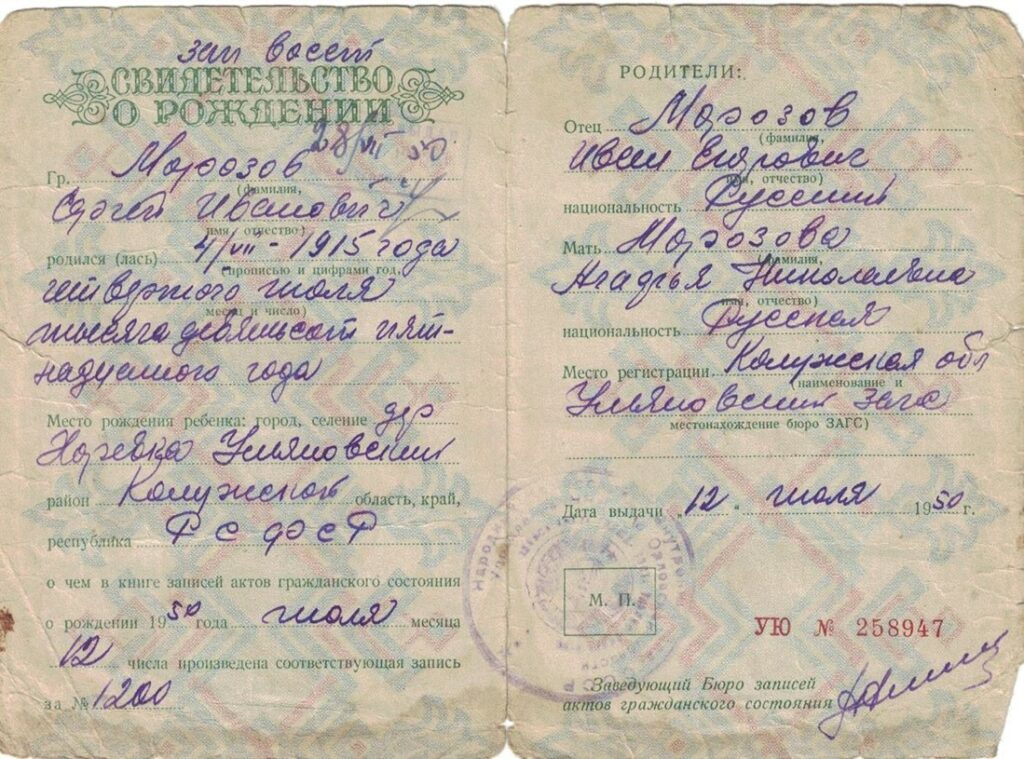 зап восст
СВИДЕТЕЛЬСТВО
О РОЖДЕНИИ
28/VII 50
Гр. Морозов
(фамилия,
Сергей Иванович
имя, отчество)
родился (лась) 4/VII - 1915 года
(прописью и цифрами год,
четвертого июля
месяц и число)
тысяча девятьсот пят-
надцатого года
Место рождения ребенка: город, селение дер
Ульяновский
район Калужской область, край,
республика РСФСР
о чем в книге записей актов гражданского состояния
о рождении 1950 года июля месяца
12 числа произведена соответствующая запись
за № 1200
РОДИТЕЛИ:
Отец Морозов
(фамилия,
Иван Егорович
имя, отчество)
национальность Русский
Мать Морозова
(фамилия,
Николаевна
имя, отчество)
национальность Русская
Место регистрации Калужская обл
(наименование и
Ульяновский загс
местонахождение бюро ЗАГС)
Дата выдачи „12" июля 1950 г.
М. П.
УЮ № 258947
Заведующий Бюро записей
актов гражданского состояния